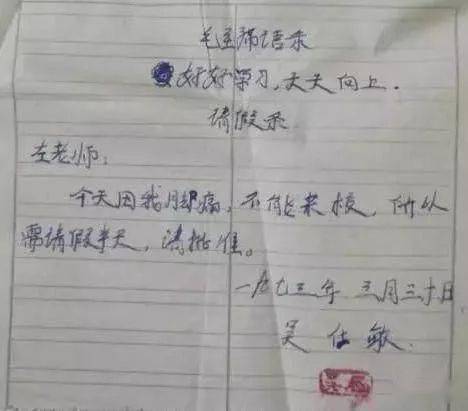 毛主席语录
好好学习,天天向上.
请假条
左老师:
今天因我脚痛,不能来校,所以
需请假半天,请批准。
一九七三年 三月三十日
吴仕敏.